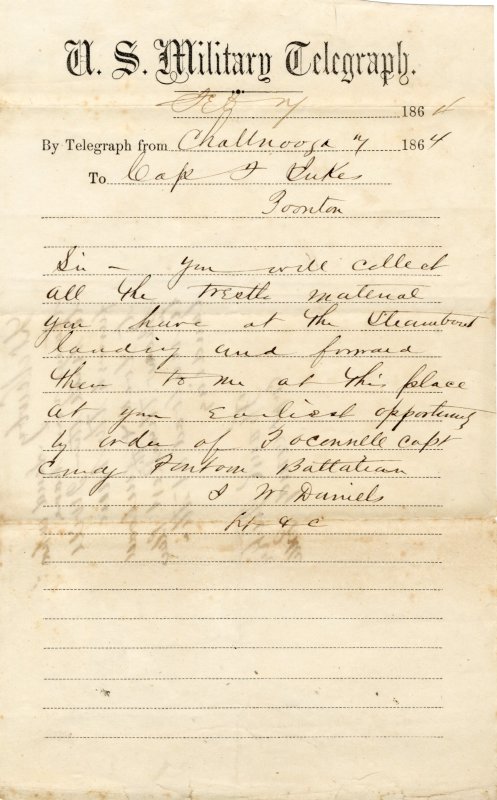 U. S. Military Telegraph.
Feb 7 1864
By Telegraph from Chattnooga 7 1864
To Cap F Sukes
Sir - you will collect
all the trestle material
you have at the Steamboat
landing and forward
them to me at this place
at your earliest opportunity
by order of P oconnell capt
Cmdg Pontoon Battalian
J W Daniels